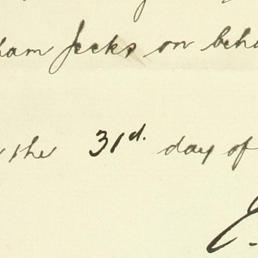 ham Jecks on beha
the 31d. day of